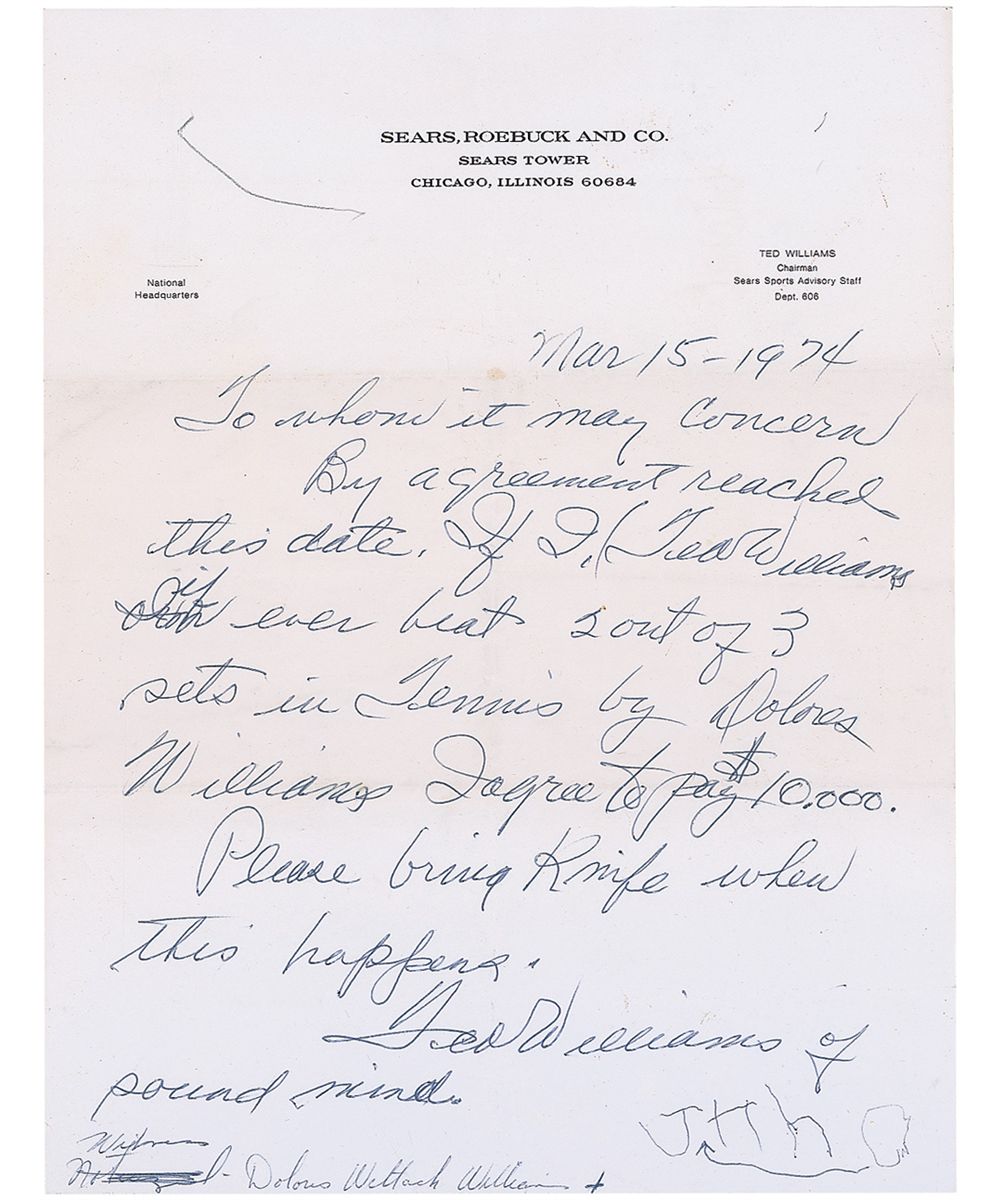 SEARS, ROEBUCK AND CO.
SEARS TOWER
CHICAGO, ILLINOIS 60684
National
Headquarters
TED WILLIAMS
Chairman
Sears Sports Advisory Staff
Dept. 606
Mar 15-1974
To whom it may concern
By agreement reached
this date. If I, (Ted Williams
if
ever beat 2 out of 3
sets in Tennis by Dolores
Williams I agree to pay $10.000.
Please bring Knife when
this happens.
Ted Williams of
sound mind.
Witness
Dolores Wettach Williams +